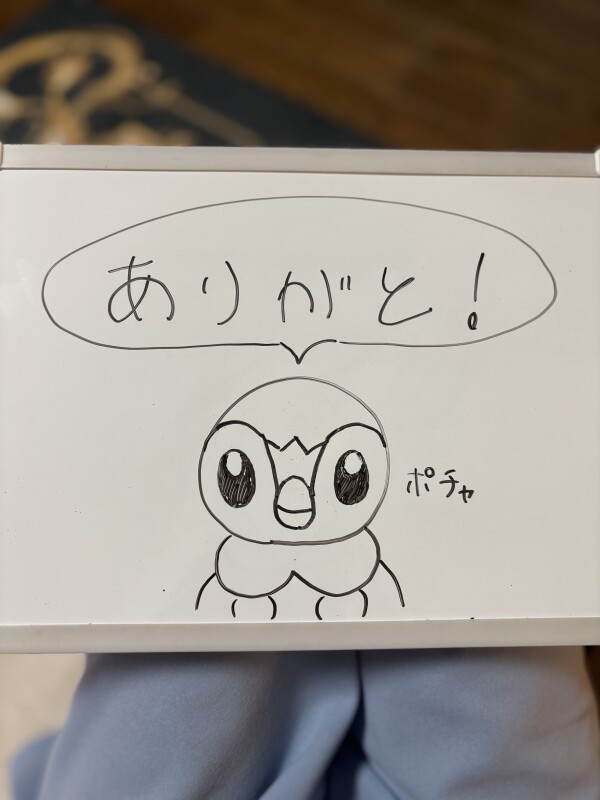 ありがと！
ポチャ